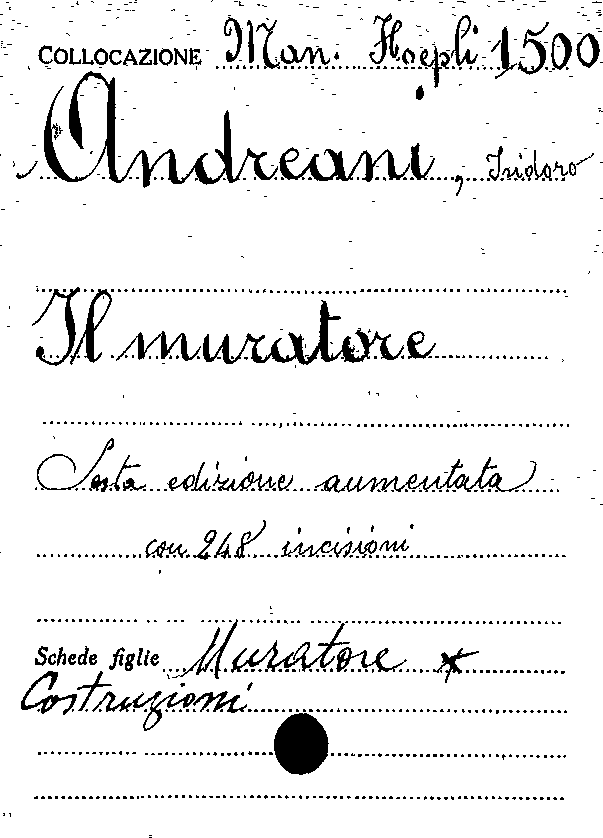 COLLOCAZIONE Man. Hoepli 1500
Andreani, Isidoro
Il muratore
Sesta edizione aumentata
con 248 incisioni
Schede figlie Muratore *
Costruzioni